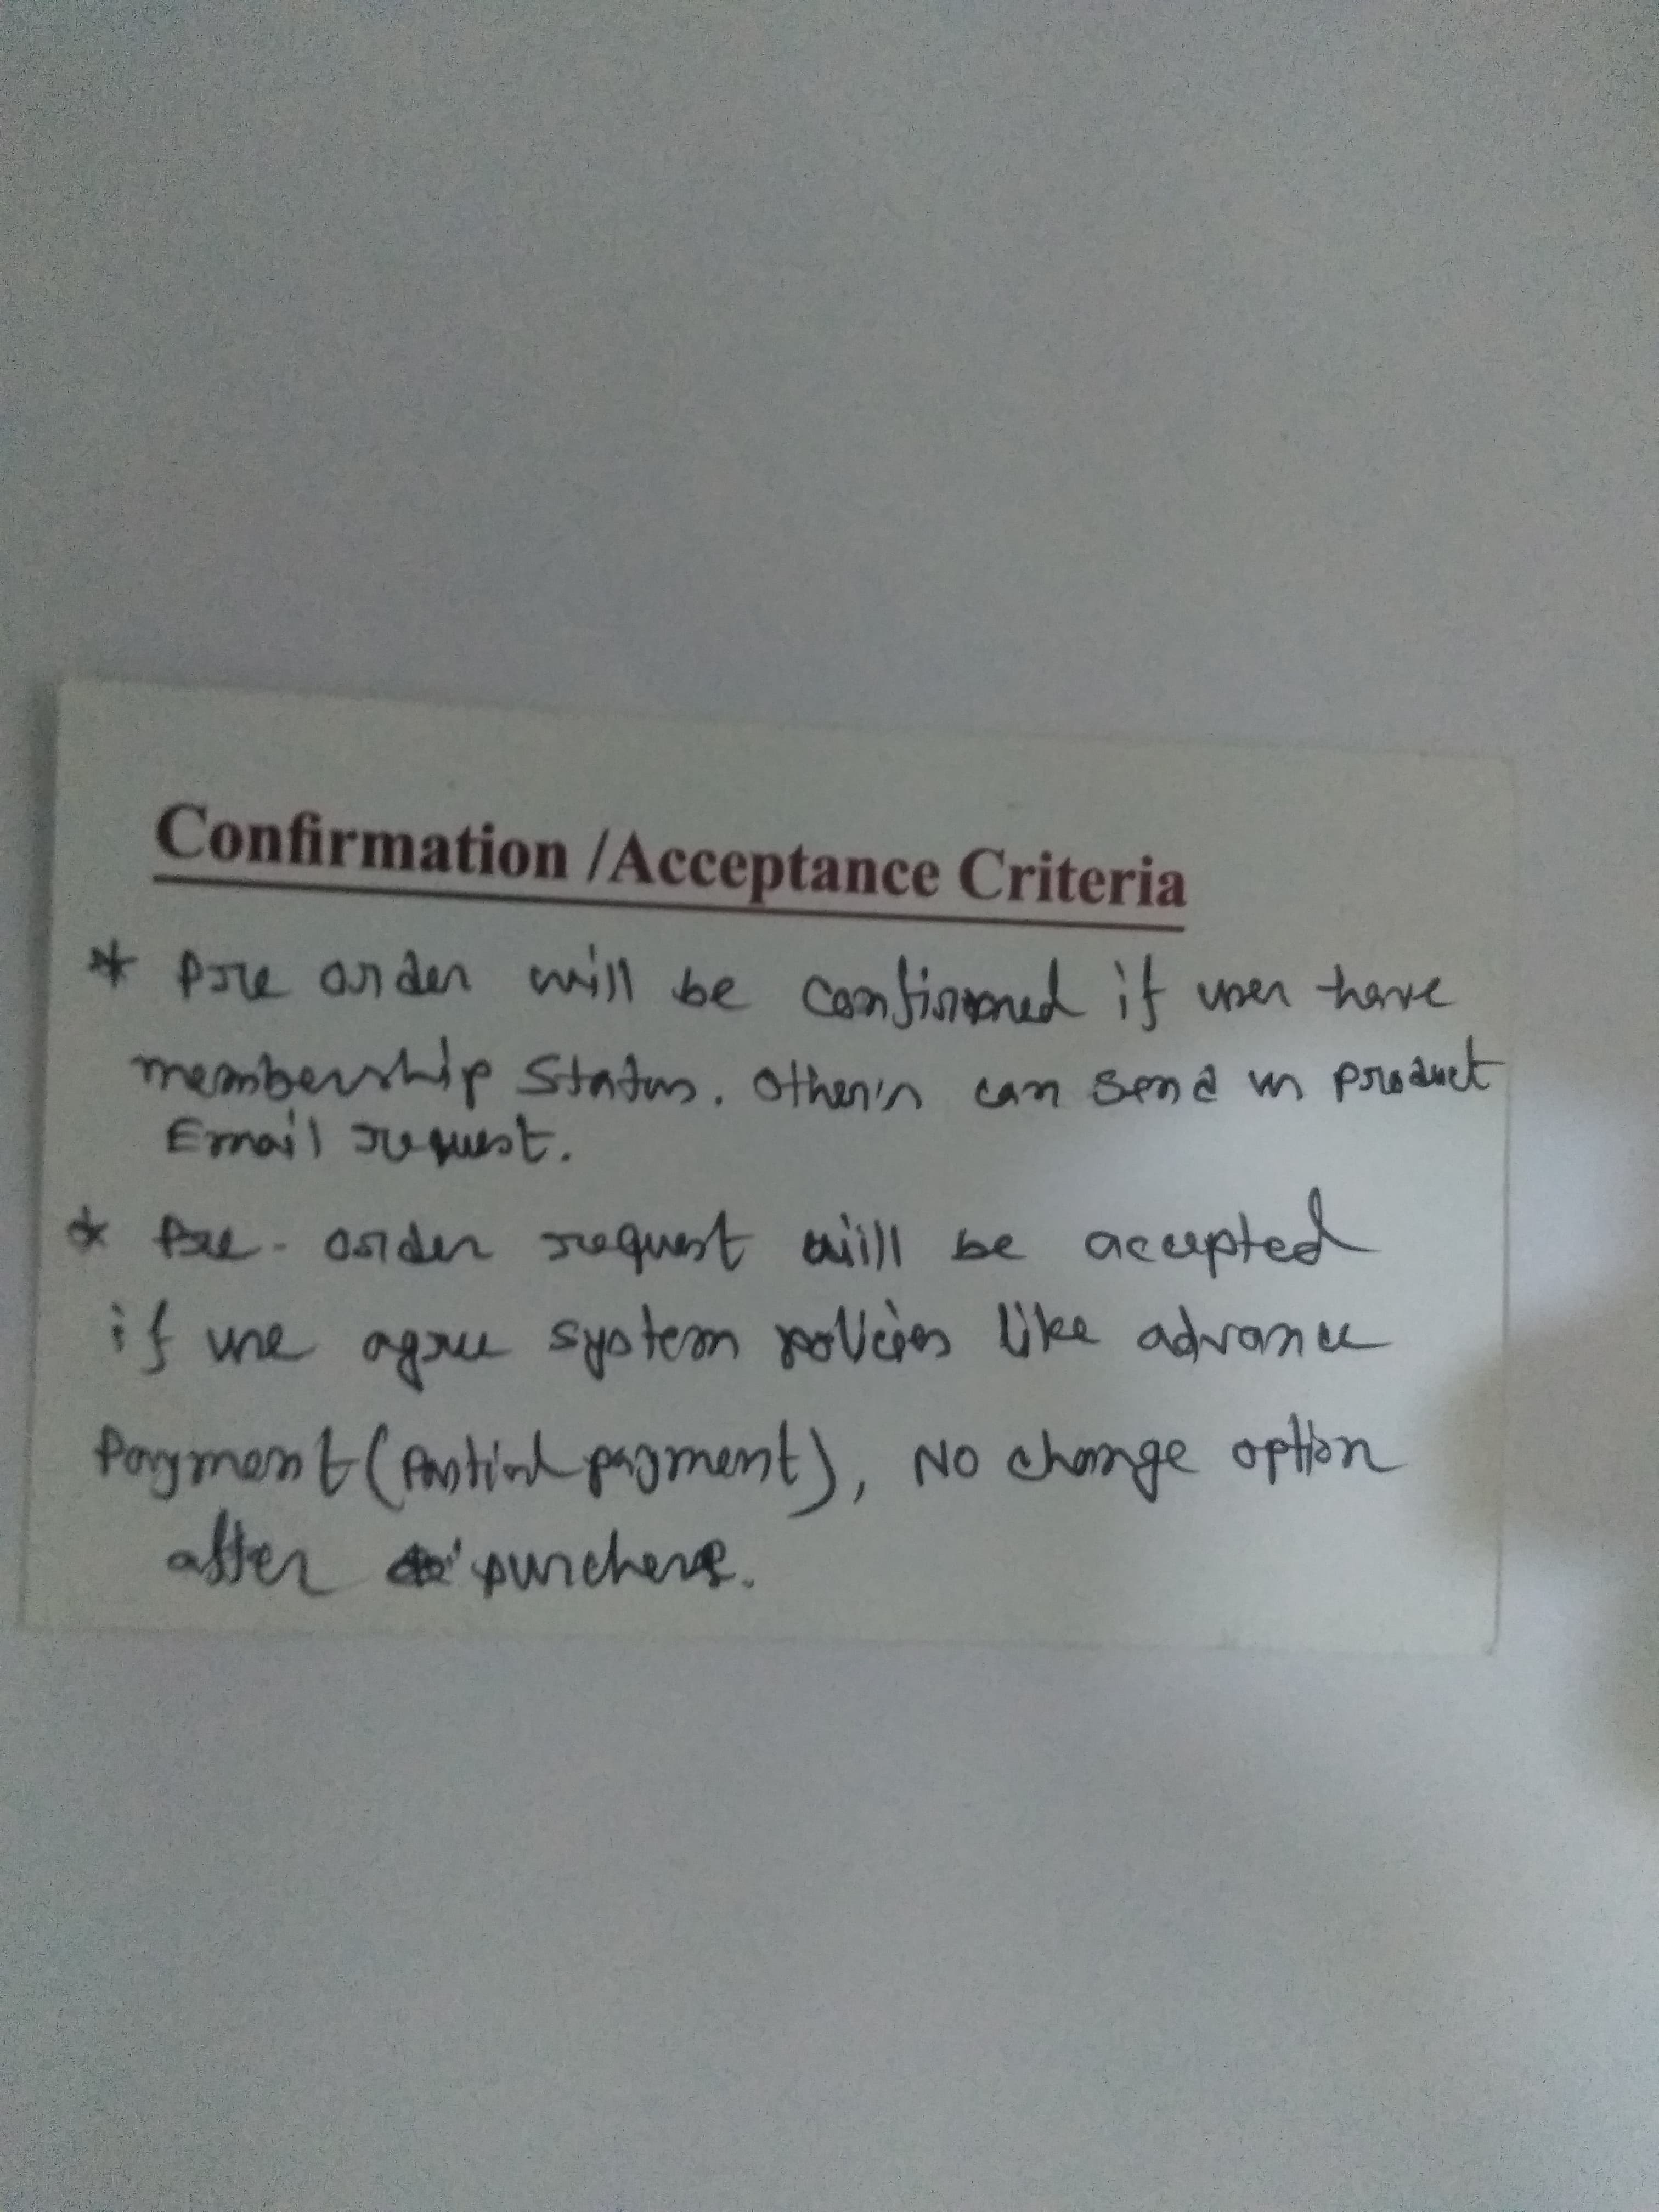 Confirmation /Acceptance Criteria
* Pre order will be confirmed if user have
membership Status. Other's can send us product
Email request.
* Pre-order request will be accepted
if use agree system policies like advance
Payment (Partial payment), No change option
after purchers.